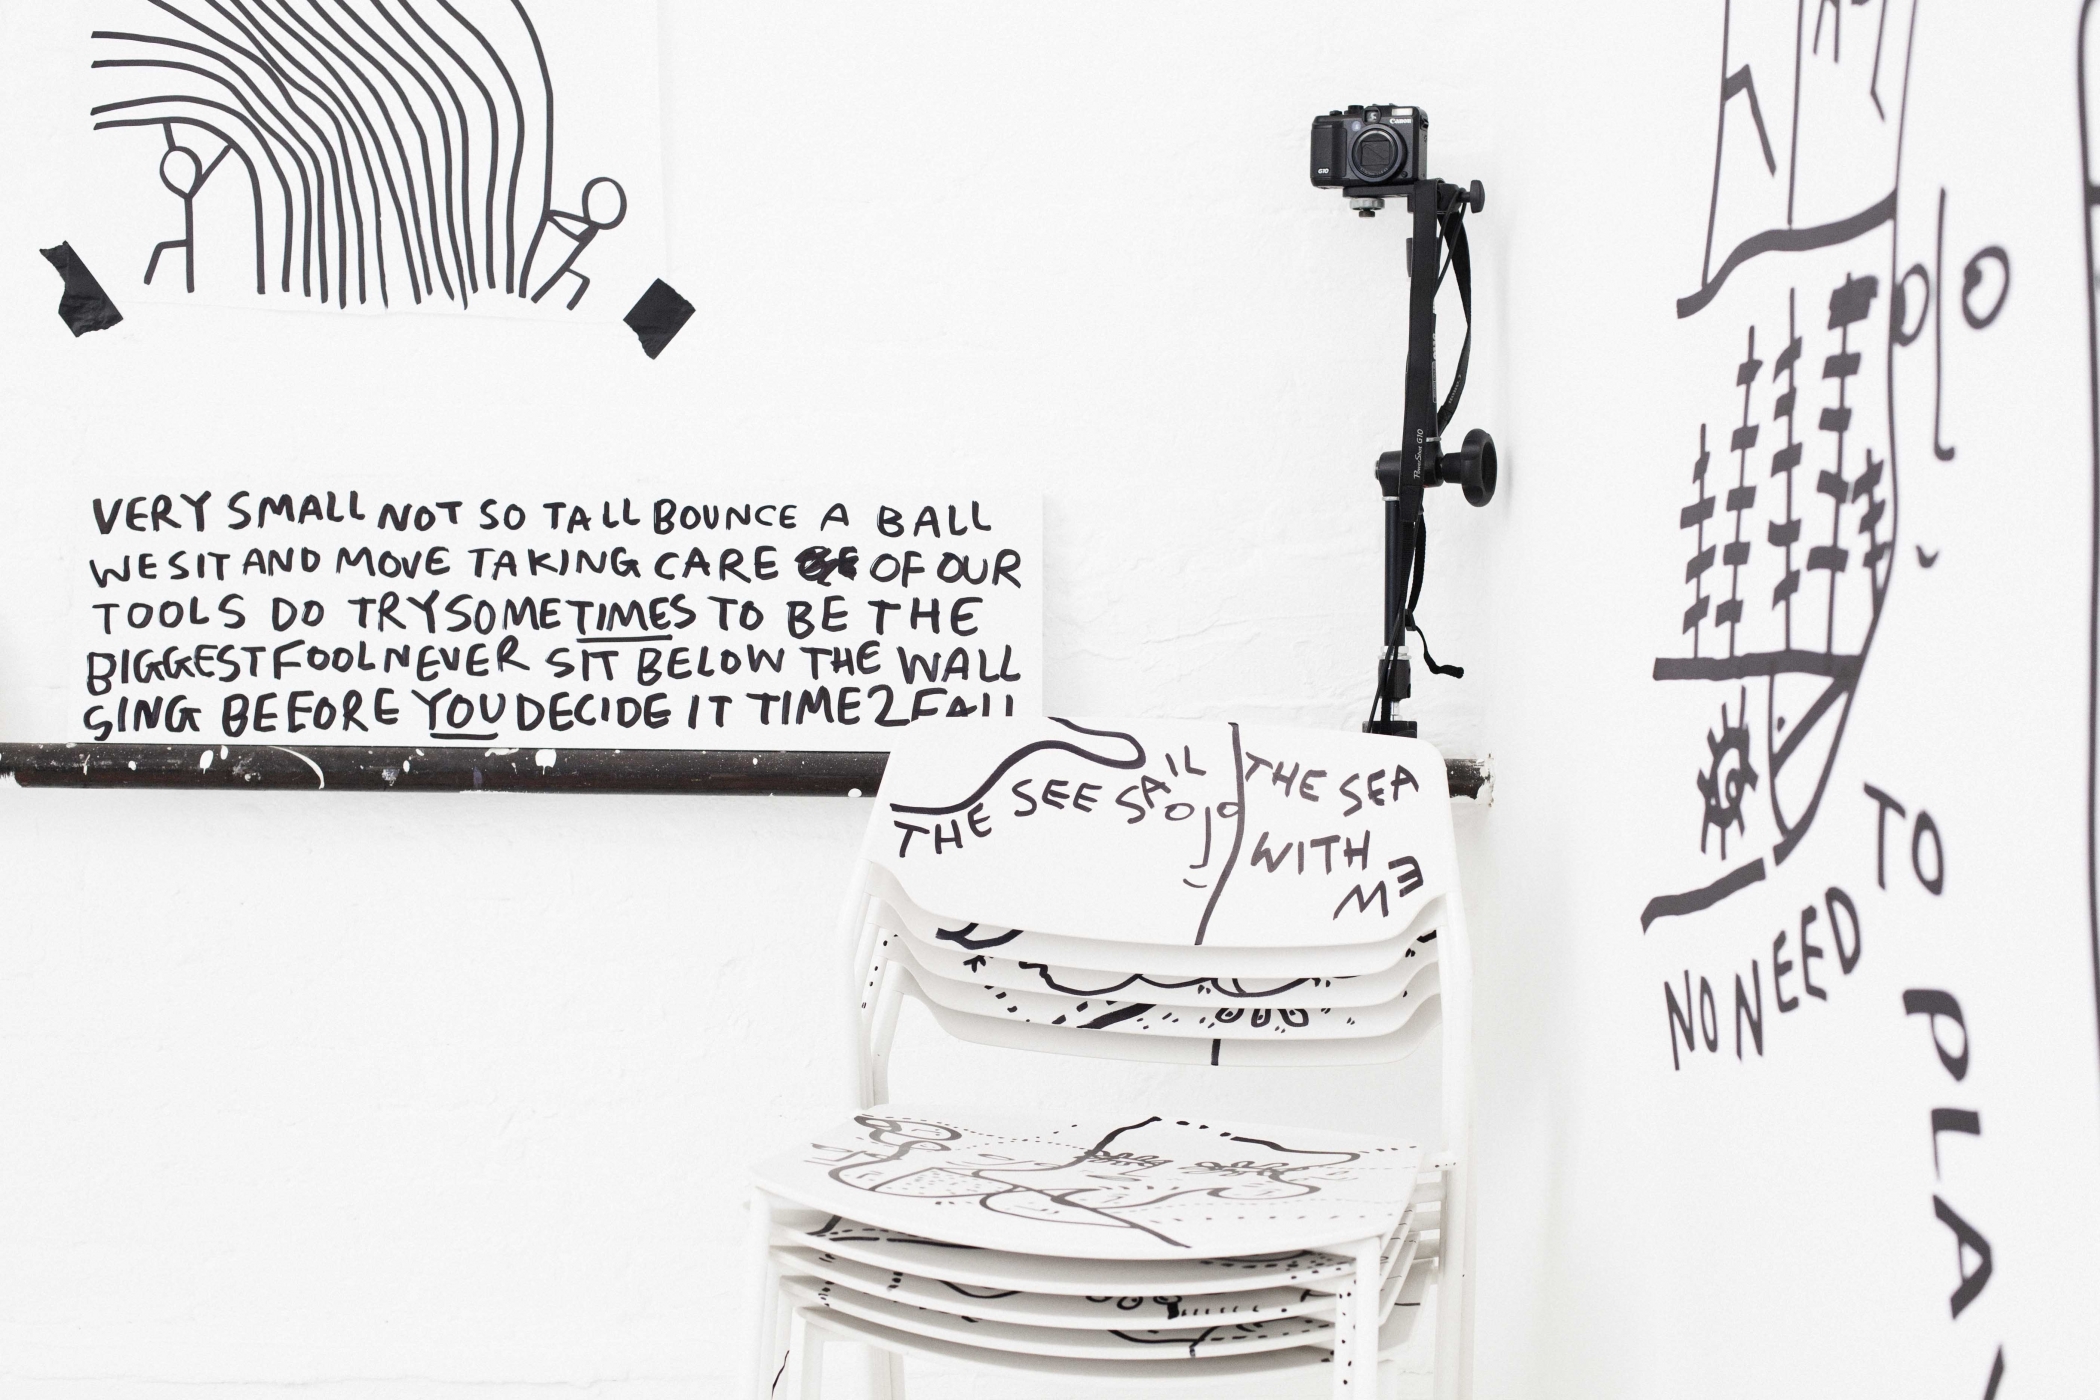 VERY SMALL NOT SO TALL BOUNCE A BALL
WE SIT AND MOVE TAKING CARE OF OUR
TOOLS DO TRY SOMETIMES TO BE THE
BIGGEST FOOL NEVER SIT BELOW THE WALL
SING BEFORE YOU DECIDE IT TIME 2 FALL
Canon
G10
PowerShot G10
THE SEE SAIL
THE SEA
WITH
ME
NO NEED
TO
PLA